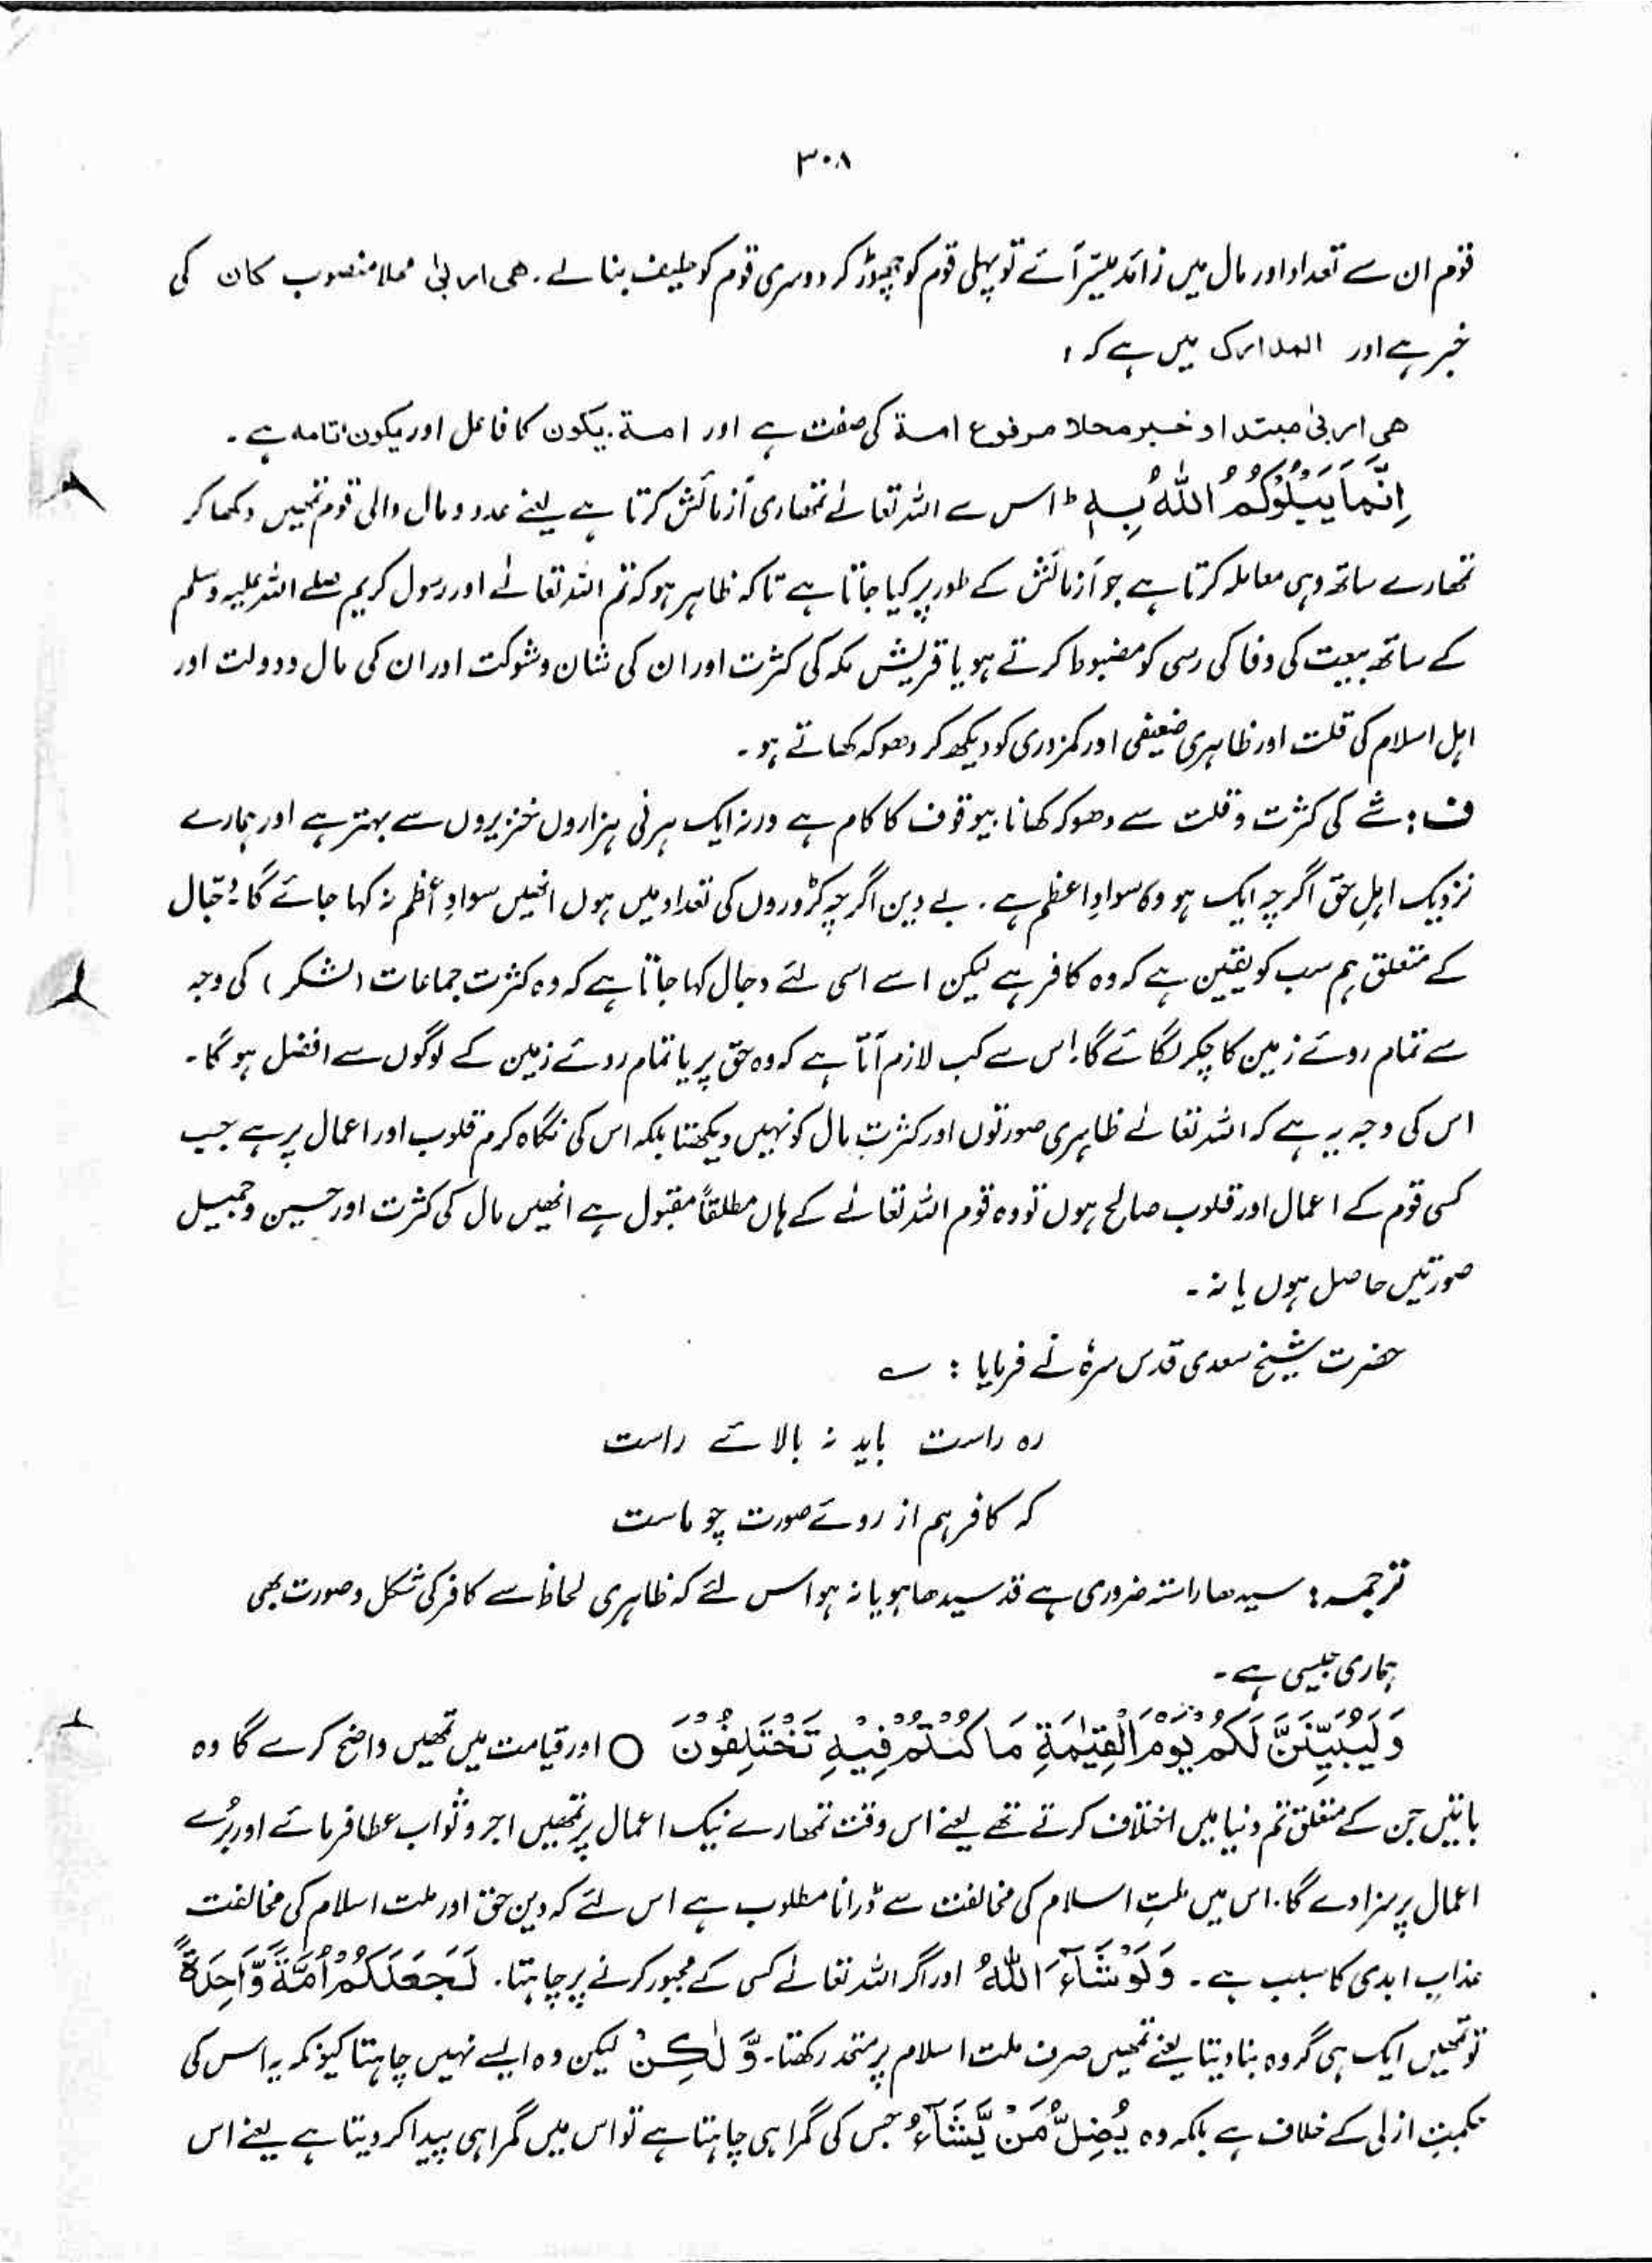 ۳۰۸
قوم ان سے تعداد اور مال میں زائد میسّر آئے تو پہلی قوم کو چھوڑ کر دوسری قوم کو حلیف بنا لے۔ ھی اربیٰ محلا منصوب کان کی
خبر ہے اور المدارک میں ہے کہ :
ھی اربیٰ مبتدا و خبر محلا مرفوع امۃ کی صفت ہے اور امۃ، یکون کا فاعل اور یکون تامہ ہے۔
اِنَّمَا یَبْلُوْکُمُ اللّٰہُ بِہٖ ؕ اس سے اللہ تعالےٰ تمھاری آزمائش کرتا ہے یعنے عدد و مال والی قوم تمھیں دکھا کر
تمھارے ساتھ وہی معاملہ کرتا ہے جو آزمائش کے طور پر کیا جاتا ہے تاکہ ظاہر ہو کہ تم اللہ تعالےٰ اور رسول کریم صلے اللہ علیہ وسلم
کے ساتھ بیعت کی وفا کی رسی کو مضبوط کرتے ہو یا قریش مکہ کی کثرت اور ان کی شان و شوکت اور ان کی مال و دولت اور
اہل اسلام کی قلت اور ظاہری ضعیفی اور کمزوری کو دیکھ کر دھوکہ کھاتے ہو۔
ف : شے کی کثرت و قلت سے دھوکہ کھانا بیوقوف کا کام ہے ورنہ ایک ہرنی ہزاروں خنزیروں سے بہتر ہے اور ہمارے
نزدیک اہلِ حق اگرچہ ایک ہو وہ سوادِ اعظم ہے۔ بے دین اگرچہ کڑوروں کی تعداد میں ہوں انھیں سوادِ اعظم نہ کہا جائے گا۔ دجّال
کے متعلق ہم سب کو یقین ہے کہ وہ کافر ہے لیکن اسے اسی لئے دجال کہا جاتا ہے کہ وہ کثرت جماعات (لشکر) کی وجہ
سے تمام روئے زمین کا چکر لگائے گا۔ اس سے کب لازم آتا ہے کہ وہ حق پر یا تمام روئے زمین کے لوگوں سے افضل ہو گا۔
اس کی وجہ یہ ہے کہ اللہ تعالےٰ ظاہری صورتوں اور کثرتِ مال کو نہیں دیکھتا بلکہ اس کی نگاہ کرم قلوب اور اعمال پر ہے جب
کسی قوم کے اعمال اور قلوب صالح ہوں تو وہ قوم اللہ تعالےٰ کے ہاں مطلقاً مقبول ہے انھیں مال کی کثرت اور حسین و جمیل
صورتیں حاصل ہوں یا نہ۔
حضرت شیخ سعدی قدس سرہٗ نے فرمایا : ؎
رہ راست باید نہ بالائے راست
کہ کافر ہم از روئے صورت چو ماست
ترجمہ : سیدھا راستہ ضروری ہے قد سیدھا ہو یا نہ ہو اس لئے کہ ظاہری لحاظ سے کافر کی شکل و صورت بھی
ہماری جیسی ہے۔
وَلَیُبَیِّنَنَّ لَکُمْ یَوْمَ الْقِیٰمَۃِ مَا کُنْتُمْ فِیْہِ تَخْتَلِفُوْنَ ○ اور قیامت میں تمھیں واضح کرے گا وہ
باتیں جن کے متعلق تم دنیا میں اختلاف کرتے تھے یعنے اس وقت تمھارے نیک اعمال پر تمھیں اجر و ثواب عطا فرمائے اور بُرے
اعمال پر سزا دے گا۔ اس میں ملتِ اسلام کی مخالفت سے ڈرانا مطلوب ہے اس لئے کہ دین حق اور ملت اسلام کی مخالفت
عذابِ ابدی کا سبب ہے۔ وَلَوْ شَآءَ اللّٰہُ اور اگر اللہ تعالےٰ کسی کے مجبور کرنے پر چاہتا۔ لَجَعَلَکُمْ اُمَّۃً وَّاحِدَۃً
تو تمھیں ایک ہی گروہ بنا دیتا یعنے تمھیں صرف ملت اسلام پر متحد رکھتا۔ وَّ لٰکِنْ لیکن وہ ایسے نہیں چاہتا کیونکہ یہ اس کی
حکمتِ ازلی کے خلاف ہے بلکہ وہ یُّضِلُّ مَنْ یَّشَآءُ جس کی گمراہی چاہتا ہے تو اس میں گمراہی پیدا کر دیتا ہے یعنے اس